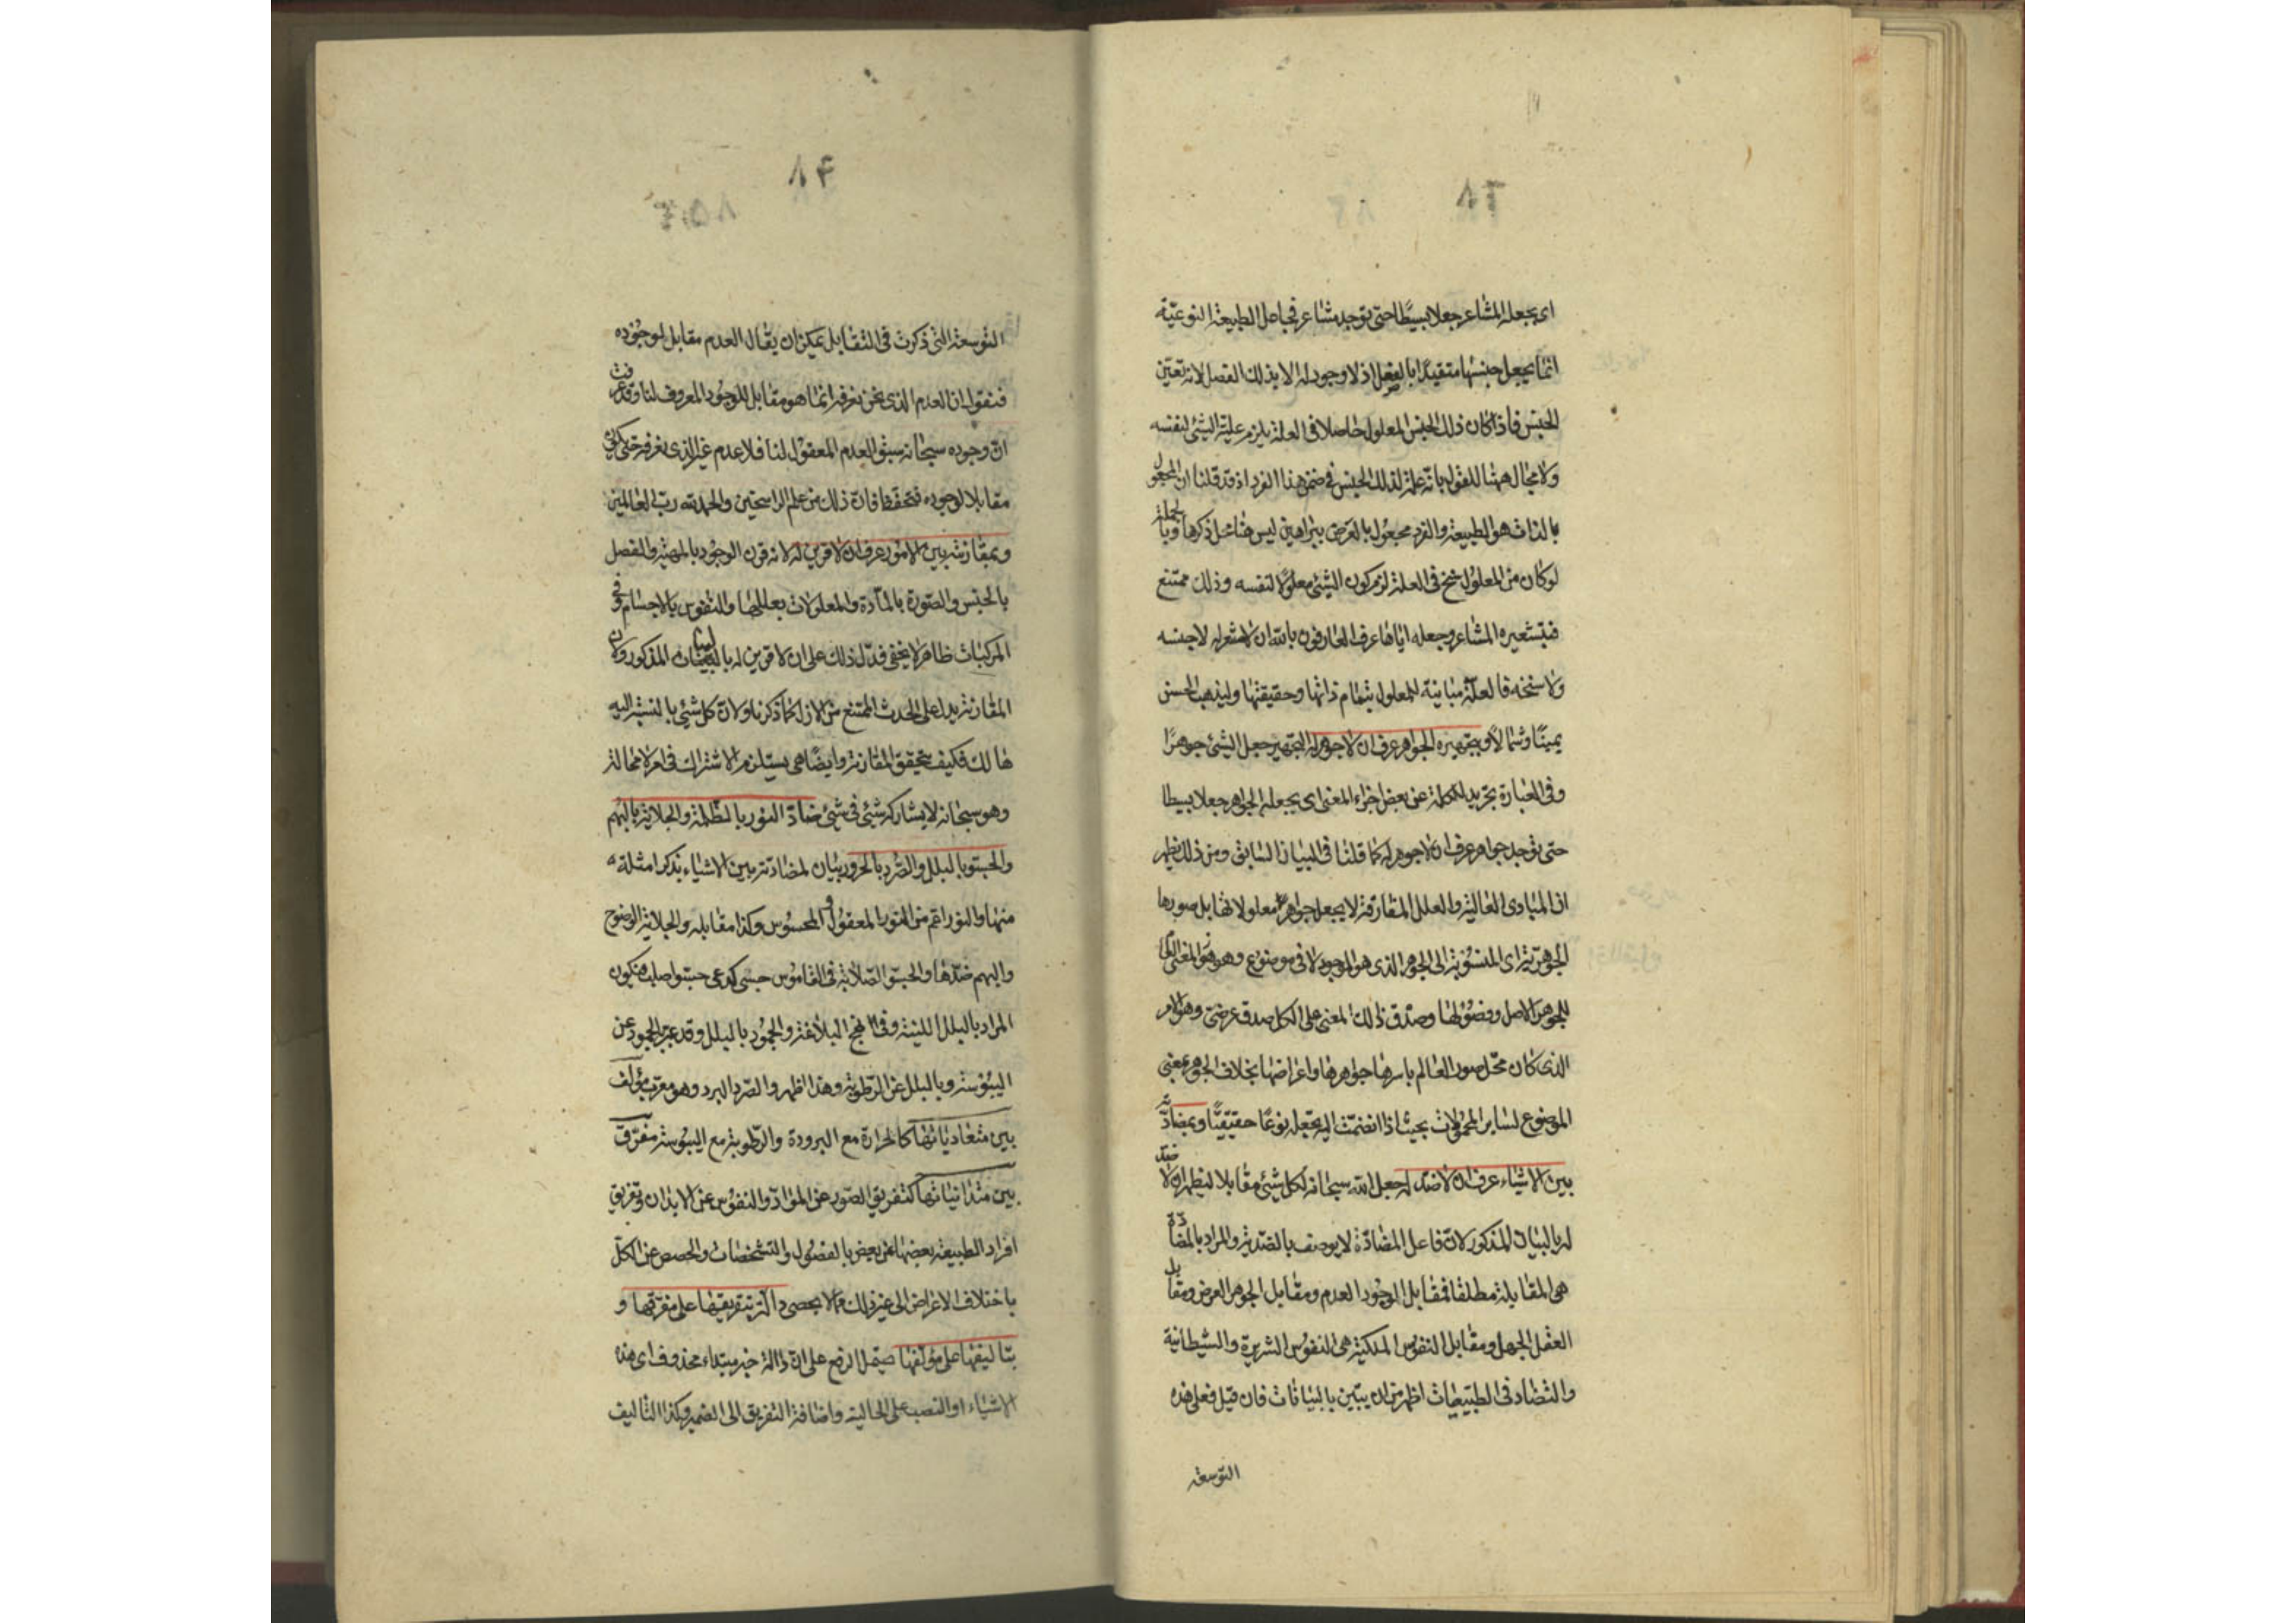 اى بجعله المشاعر جعلا بسيطا حتى توجد مشاعر فجاعل الطبيعة النوعيّة
انما يجعل جنسها متقيدا بالفصل اذ لا وجود له الا بذلك الفصل لانه تعيّن
الجنس فاذا كان ذلك الجنس المعلول حاصلا فى العلة يلزم علية الشئ لنفسه
ولا مجال ههنا للقول بانه علة لذلك الجنس فى ضمن هذا الفرد اذ قد قلنا ان المجعول
بالذات هو الطبيعة والفرد مجعول بالعرض ببراهين ليس هنا محل ذكرها وبالجملة
لو كان من المعلول سنخ فى العلة لزم كون الشئ معلولا لنفسه وذلك ممتنع
فبتشعيره المشاعر وجعله اياها عرف العارفون بالله ان لا مشعر له لا جنسه
ولا سنخه فالعلة مباينة للمعلول بتمام ذاتها وحقيقتها وليذهب الحسن
يمينًا وشمالًا وبتجهيره الجواهر عرف ان لا جوهر له التجهير جعل الشئ جوهرًا
وفى العبارة تجريد للكلمة عن بعض اجزاء المعنى اى بجعله الجواهر جعلا بسيطا
حتى توجد جواهر عرف ان لا جوهر له كما قلنا فى البيان السابق ومن ذلك يظهر
ان المبادى العالية والعلل المفارقة لا يجعل جواهر معلولاتها بل صورها
الجوهرية اى المنسوبة الى الجوهر الذى هو الموجود لا فى موضوع وهو هو المعنى
للجوهر الاصل وفصولها وصدق ذلك المعنى على الكل صدق عرضى وهو الامر
الذى كان محل صور العالم باسرها جواهرها واعراضها بخلاف الجوهر بمعنى
الموضوع لساير المحمولات بحيث اذا انضمت اليه تجعله نوعًا حقيقيًّا وبمضادّته
بين الاشياء عرف ان لا ضدّ له جعل الله سبحانه لكل شئ مقابلا ليظهر ان لا ضدّ
له بالبيان المذكور لان فاعل المضادّة لا يوصف بالضدية والمراد بالمضادّة
هى المقابلة مطلقا فمقابل الوجود العدم ومقابل الجوهر العرض ومقابل
العقل الجهل ومقابل النفوس الملكية هى النفوس الشريرة والشيطانية
والتضاد فى الطبيعيات اظهر من ان يبيّن بالبيانات فان قيل فعلى هذه
التوسعة
التوسعة التى ذكرت فى التقابل يمكن ان يقال العدم مقابل لوجوده
فنقول ان العدم الذى نحن نعرفه انما هو مقابل للوجود المعروف لنا وقد عرفت
انّ وجوده سبحانه سبق العدم المعقول لنا فلا عدم غير الذى نعرفه حتى يكون
مقابلا لوجوده فتحفّظ فانّ ذلك من علم الراسخين والحمد لله ربّ العالمين
وبمقارنته بين الامور عرف ان لا قرين له لانه قرن الوجود بالمهية والفصل
بالجنس والصورة بالمادة والمعلولات بعللها والنفوس بالاجسام وفى
المركبات ظاهر لا يخفى فدلّ ذلك على ان لا قرين له بالبيان المذكور ولان
المقارنة يدل على الحدث الممتنع من الازل كما ذكرنا ولان كل شئ بالنسبة اليه
هالك فكيف يتحقق المقارنة وايضًا هى يستلزم الاشتراك فى امر لا محالة
وهو سبحانه لا يشاركه شئ فى شئ ضادّ النور بالظلمة والجلاية بالبهم
والجسو بالبلل والصّرد بالحرور بيان لمضادّته بين الاشياء بذكر امثلة
منها والنور اعم من النور المعقول والمحسوس وكذا مقابله والجلاية الوضوح
والبهم ضدّها والجسو الصلابة فى القاموس جسى كدعى جسوا صلب فيكون
المراد بالبلل اللينة وفى نهج البلاغة والجمود بالبلل وقد عبّر بالجمود عن
اليبوسة وبالبلل عن الرطوبة وهذا اظهر والصّرد البرد وهو معرّب مؤلف
بين متعادياتها كالحرارة مع البرودة والرطوبة مع اليبوسة مفرّق
بين متدانياتها كتفريق الصور عن المواد والنفوس عن الابدان وتفريق
افراد الطبيعة بعضها عن بعض بالفصول والتشخصات والحصص عن الكلّ
باختلاف الاعراض الى غير ذلك مما لا يحصى دالّة بتفريقها على مفرّقها و
بتاليفها على مؤلّفها يحتمل الرفع على انّ دالة خبر مبتداء محذوف اى هذه
الاشياء او النصب على الحالية واضافة التفريق الى الضمير وكذا التاليف